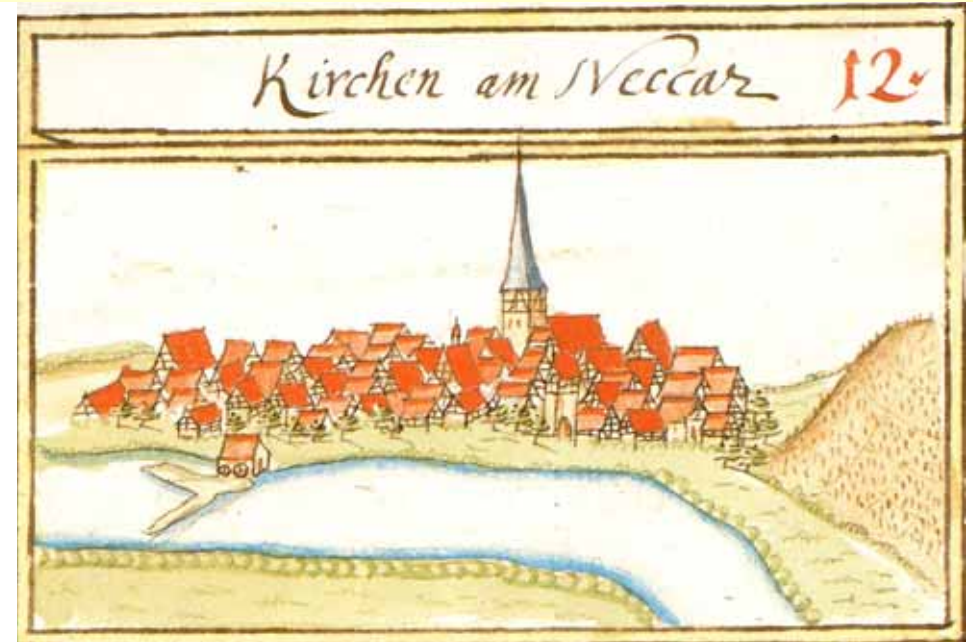 Kirchen am Neccar 12.